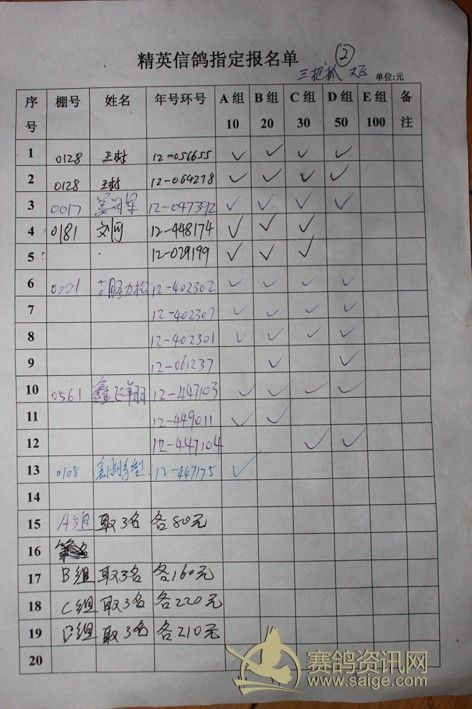 精英信鸽指定报名单 ②
三把抓 大正 单位:元
序号 棚号 姓名 年号环号 A组 10 B组 20 C组 30 D组 50 E组 100 备注
1 0128 王村 12-056655 ✓ ✓ ✓ ✓
2 0128 王村 12-064278 ✓ ✓ ✓ ✓
3 0017 12-047392 ✓ ✓ ✓ ✓
4 0181 刘刚 12-448174 ✓ ✓ ✓
5 12-029199 ✓ ✓ ✓
6 0001 12-402302 ✓ ✓ ✓ ✓
7 12-402307 ✓ ✓ ✓ ✓
8 12-402301 ✓ ✓ ✓ ✓
9 12-061237 ✓ ✓
10 0561 鑫飞翔 12-447103 ✓ ✓ ✓ ✓
11 12-449011 ✓ ✓
12 12-447104 ✓ ✓
13 0108 12-447175 ✓
14
15 A组 取3名 各80元
16
17 B组 取3名 各160元
18 C组 取3名 各220元
19 D组 取3名 各210元
20
赛鸽资讯网
www.saige.com